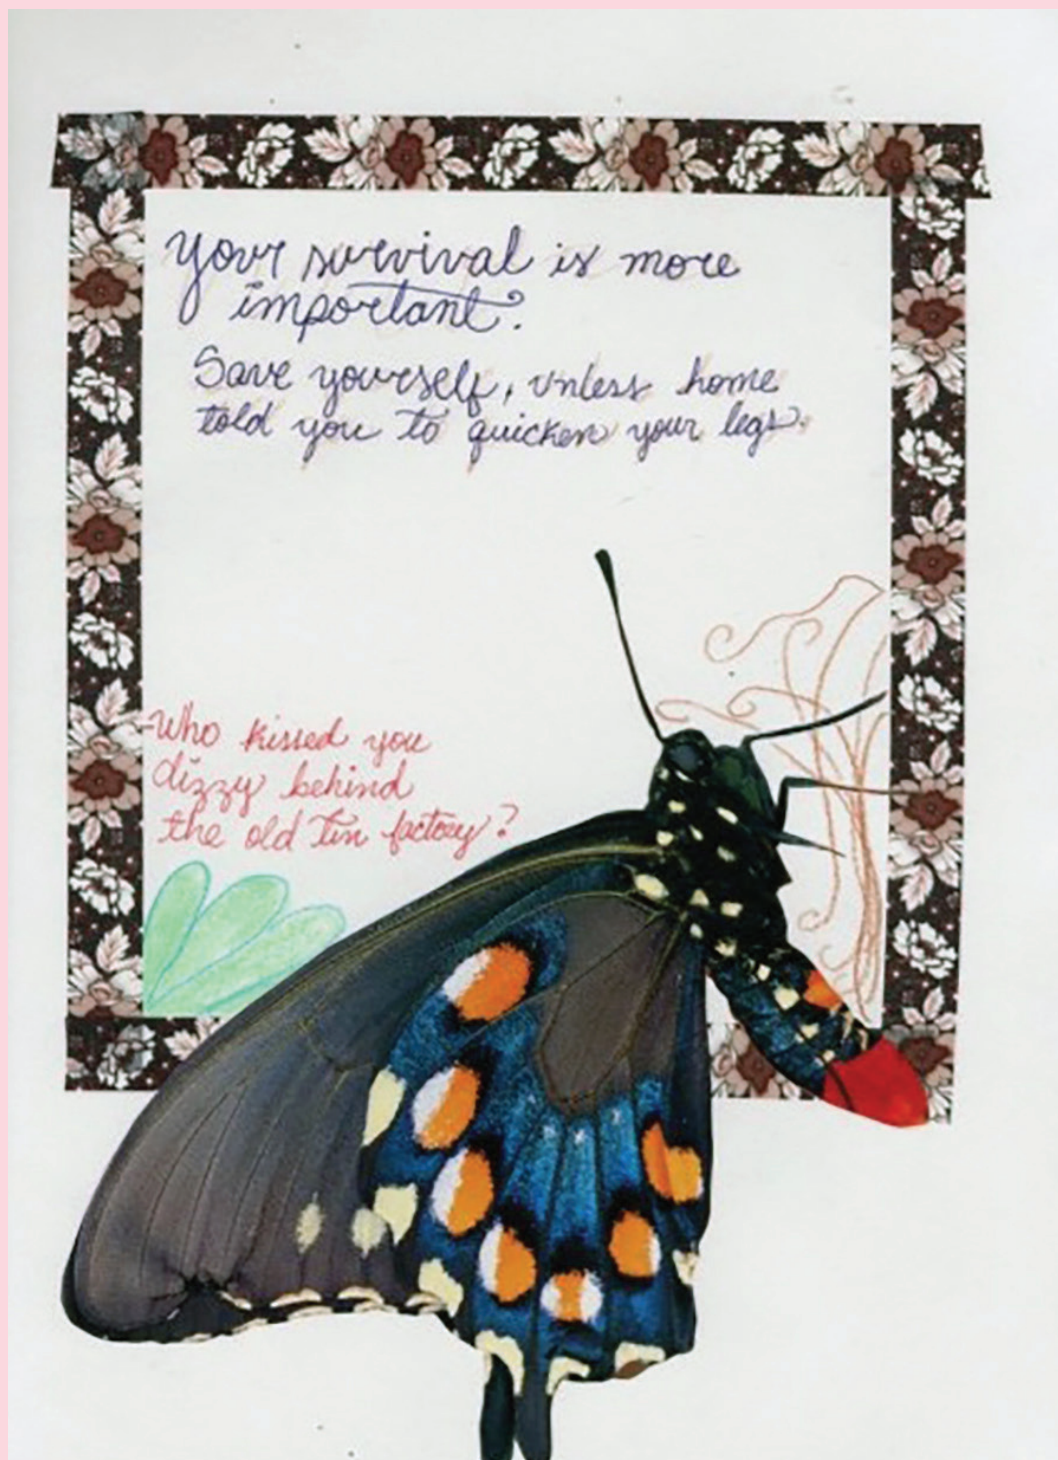 Your survival is more
important.
Save yourself, unless home
told you to quicken your legs.
-Who kissed you
dizzy behind
the old tin factory?